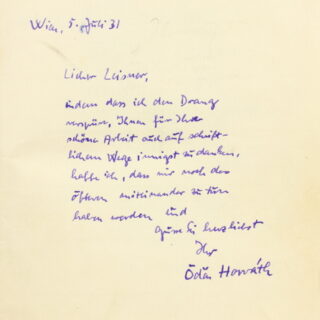 Wien, 5. Juli 31
Lieber Leisner,
indem dass ich den Drang
verspüre, Ihnen für Ihre
schöne Arbeit auch auf schrift-
lichem Wege innigst zu danken,
hoffe ich, dass wir noch des
öfteren miteinander zu tun
haben werden und
grüsse Sie herzlichst
Ihr
Ödön Horváth